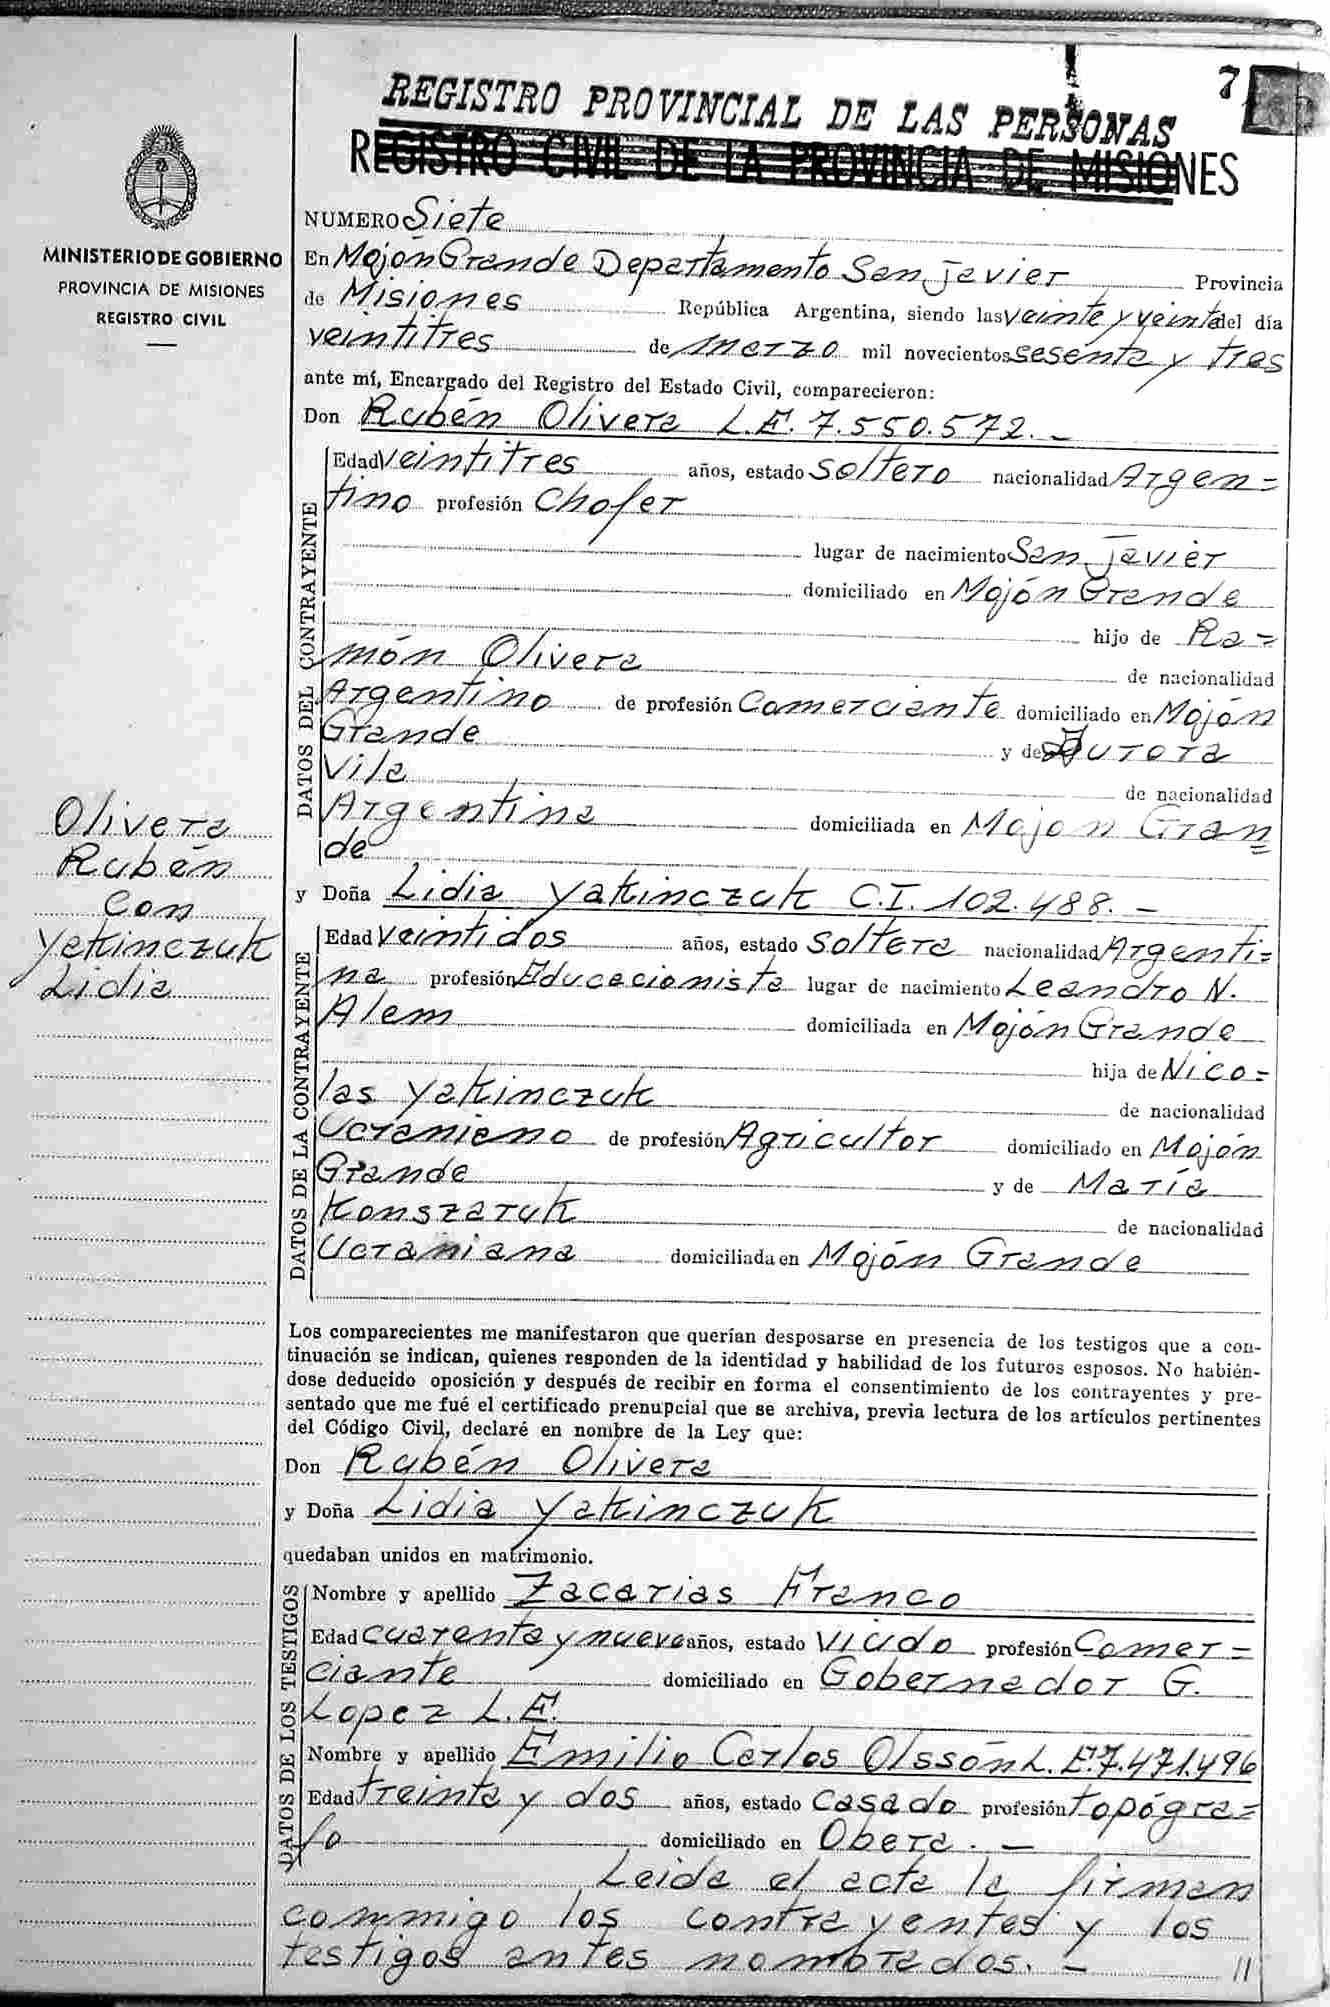 7
REGISTRO PROVINCIAL DE LAS PERSONAS
REGISTRO CIVIL DE LA PROVINCIA DE MISIONES
MINISTERIO DE GOBIERNO
PROVINCIA DE MISIONES
REGISTRO CIVIL
NUMERO Siete
En Mojón Grande Departamento San Javier Provincia
de Misiones República Argentina, siendo las veinte y veinte del día
veintitres de marzo mil novecientos sesenta y tres
ante mí, Encargado del Registro del Estado Civil, comparecieron:
Don Rubén Olivera L.E. 7.550.572. -
DATOS DEL CONTRAYENTE
Edad veintitres años, estado soltero nacionalidad Argen=
tino profesión Chofer
lugar de nacimiento San Javier
domiciliado en Mojón Grande
hijo de Ra=
món Olivera de nacionalidad
Argentino de profesión Comerciante domiciliado en Mojón
Grande y de Aurora
Vila de nacionalidad
Argentina domiciliada en Mojon Gran=
de
Olivera
Rubén
Con
Yakinczuk
Lidia
y Doña Lidia Yakinczuk C.I. 102.488. -
DATOS DE LA CONTRAYENTE
Edad veintidos años, estado soltera nacionalidad Argenti=
na profesión Educacionista lugar de nacimiento Leandro N.
Alem domiciliada en Mojón Grande
hija de Nico=
las Yakinczuk de nacionalidad
Ucraniano de profesión Agricultor domiciliado en Mojón
Grande y de María
Konszaruk de nacionalidad
Ucraniana domiciliada en Mojón Grande
Los comparecientes me manifestaron que querían desposarse en presencia de los testigos que a con-
tinuación se indican, quienes responden de la identidad y habilidad de los futuros esposos. No habién-
dose deducido oposición y después de recibir en forma el consentimiento de los contrayentes y pre-
sentado que me fué el certificado prenupcial que se archiva, previa lectura de los artículos pertinentes
del Código Civil, declaré en nombre de la Ley que:
Don Rubén Olivera
y Doña Lidia Yakinczuk
quedaban unidos en matrimonio.
DATOS DE LOS TESTIGOS
Nombre y apellido Zacarias Franco
Edad cuarenta y nueve años, estado viudo profesión Comer=
ciante domiciliado en Gobernador G.
Lopez L.E.
Nombre y apellido Emilio Carlos Olssón L.E. 7.471.496
Edad treinta y dos años, estado casado profesión topógra=
fo domiciliado en Obera. -
Leida el acta la firman
conmigo los contrayentes y los
testigos antes nombrados. - //